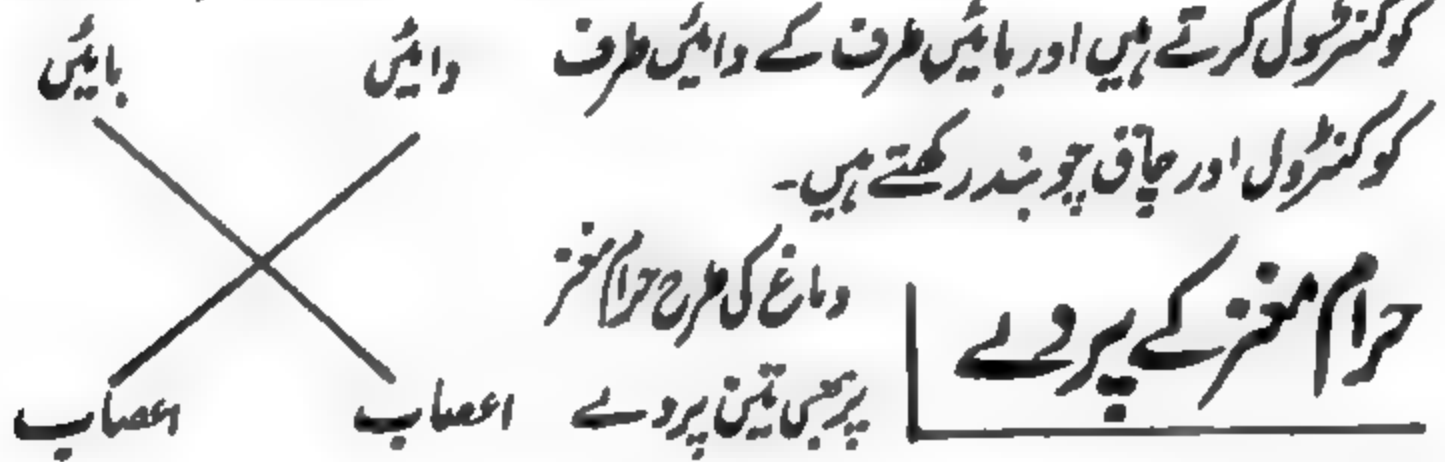 کو کنٹرول کرتے ہیں اور بائیں طرف کے دائیں طرف
کو کنٹرول اور چاق چوبند رکھتے ہیں۔
حرام مغز کے پردے
دماغ کی طرح حرام مغز
پر بھی تین پردے
دائیں
بائیں
اعصاب
اعصاب